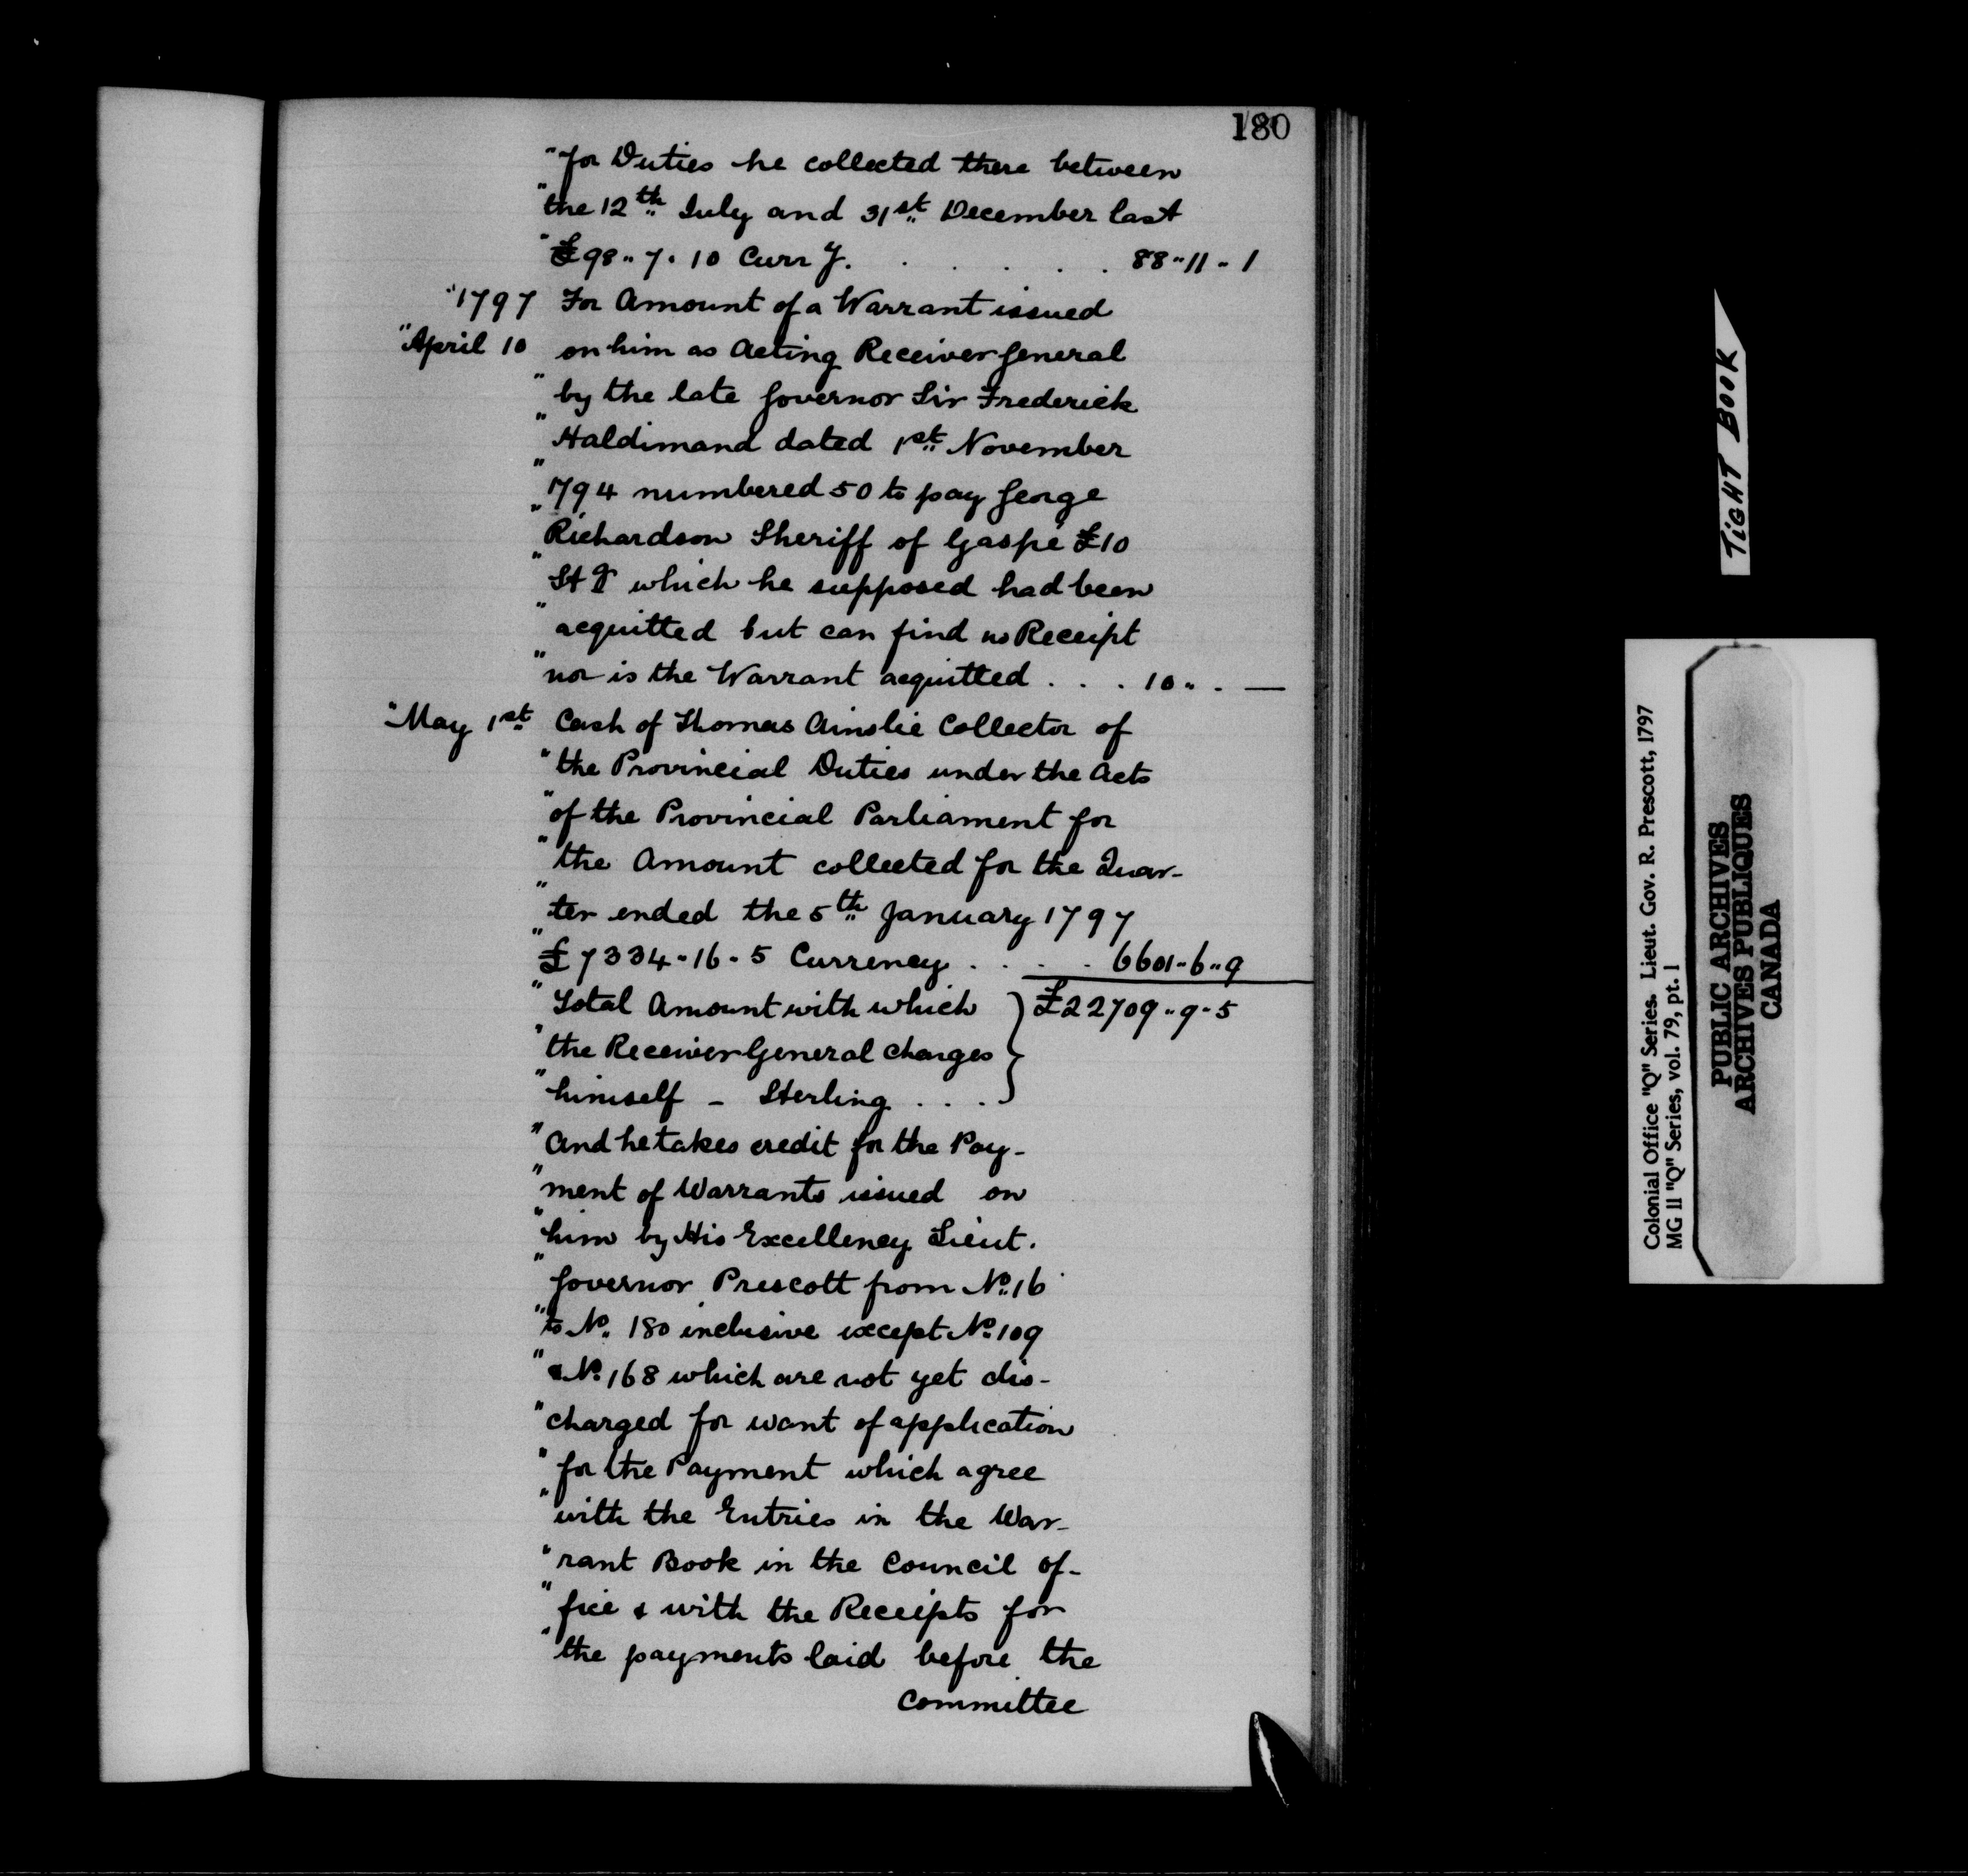 180
"for Duties he collected there between
"the 12th July and 31st December last
"£98"7"10 Curry. . . . . . . 88"11"1
"1797 For Amount of a Warrant issued
"April 10 on him as Acting Receiver General
"by the late Governor Sir Frederick
"Haldimand dated 1st November
"1794 numbered 50 to pay George
"Richardson Sheriff of Gaspé £10
"Stg which he supposed had been
"acquitted but can find no Receipt
"nor is the Warrant acquitted . . . 10" . —
"May 1st Cash of Thomas Ainslie Collector of
"the Provincial Duties under the Acts
"of the Provincial Parliament for
"the Amount collected for the Quar-
"ter ended the 5th January 1797
"£7334"16"5 Currency . . . . 6601"6"9
"Total Amount with which } £22709"9"5
"the Receiver General charges
"himself - Sterling . . . .
"And he takes credit for the Pay-
"ment of Warrants issued on
"him by His Excellency Lieut.
"Governor Prescott from No. 16
"to No. 180 inclusive except No. 109
"& No. 168 which are not yet dis-
"charged for want of application
"for the Payment which agree
"with the Entries in the War-
"rant Book in the Council of-
"fice & with the Receipts for
"the payments laid before the
Committee
TIGHT BOOK
Colonial Office "Q" Series. Lieut. Gov. R. Prescott, 1797
MG 11 "Q" Series, vol. 79, pt. 1
PUBLIC ARCHIVES
ARCHIVES PUBLIQUES
CANADA